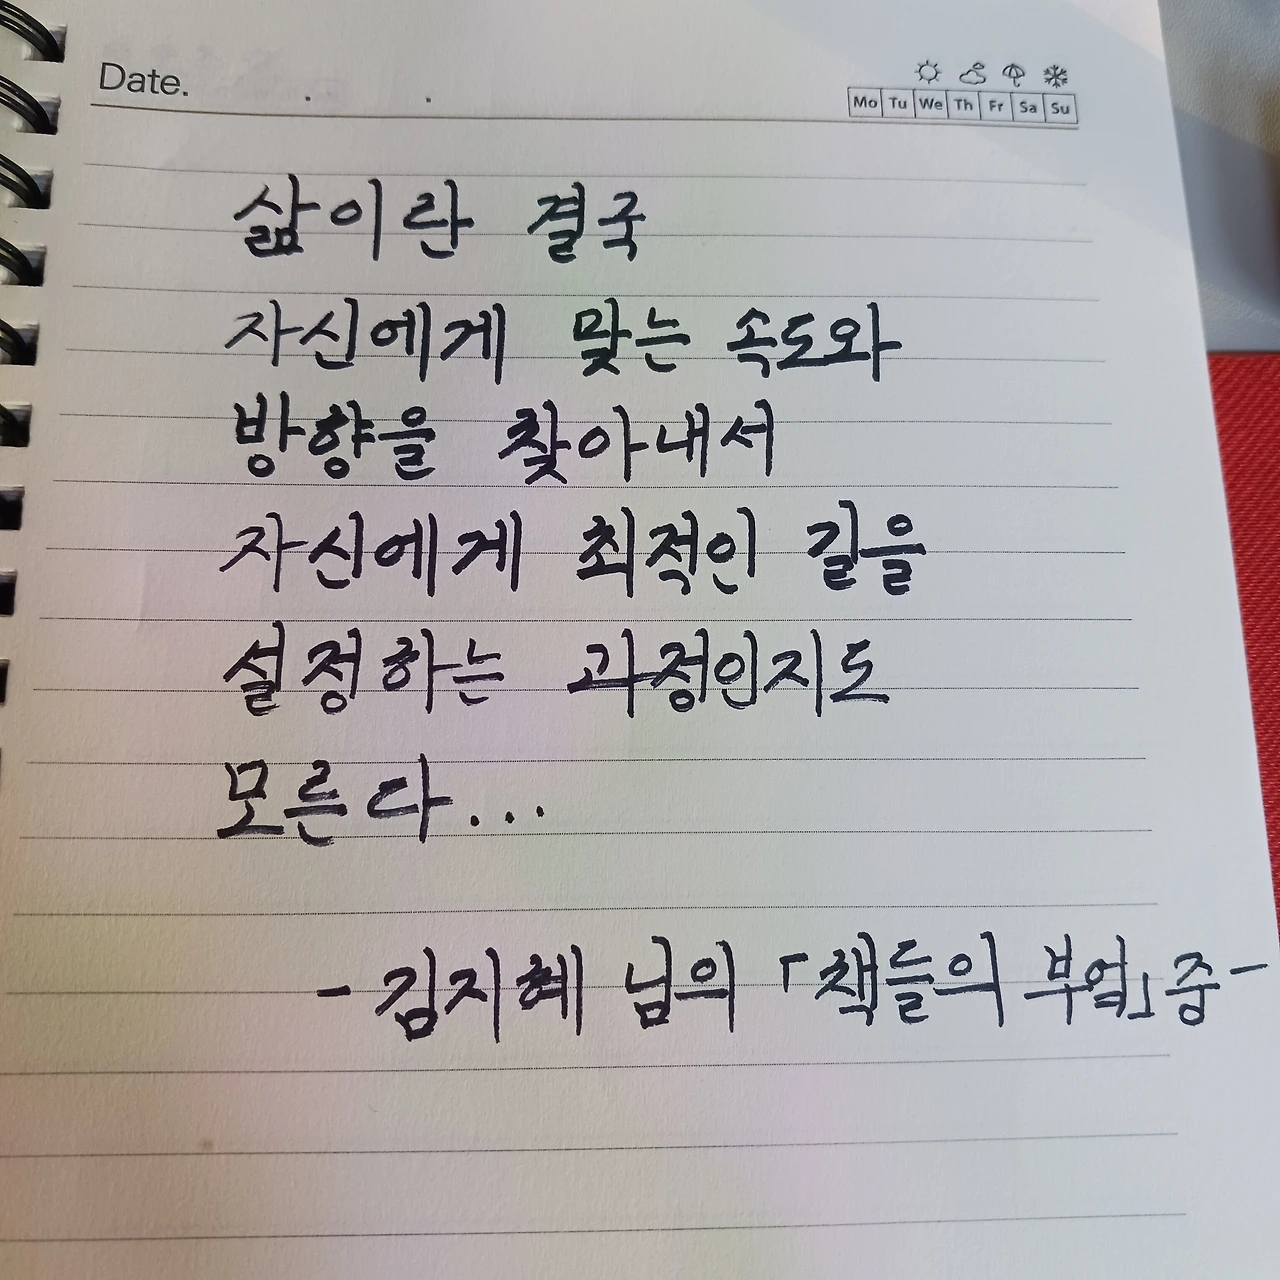 Date. . .
Mo Tu We Th Fr Sa Su
삶이란 결국
자신에게 맞는 속도와
방향을 찾아내서
자신에게 최적인 길을
설정하는 과정인지도
모른다...
- 김지혜 님의 「책들의 부엌」 중 -